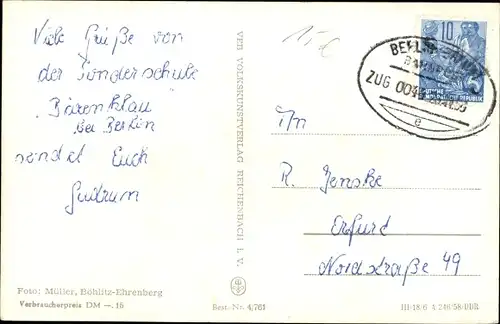 Viele Grüße von
der Sonderschule
"Bärenklau"
bei Berlin
sendet Euch
Gudrun
Foto: Müller, Böhlitz-Ehrenberg
Verbraucherpreis DM —.15
Best.-Nr. 4/761
VEB VOLKSKUNSTVERLAG REICHENBACH I. V.
15
10
BERLIN
BAHNPOST
ZUG 004
e
An
R. Jenske
Erfurt
Nordstraße 49
III/18/6 A 246/58/DDR